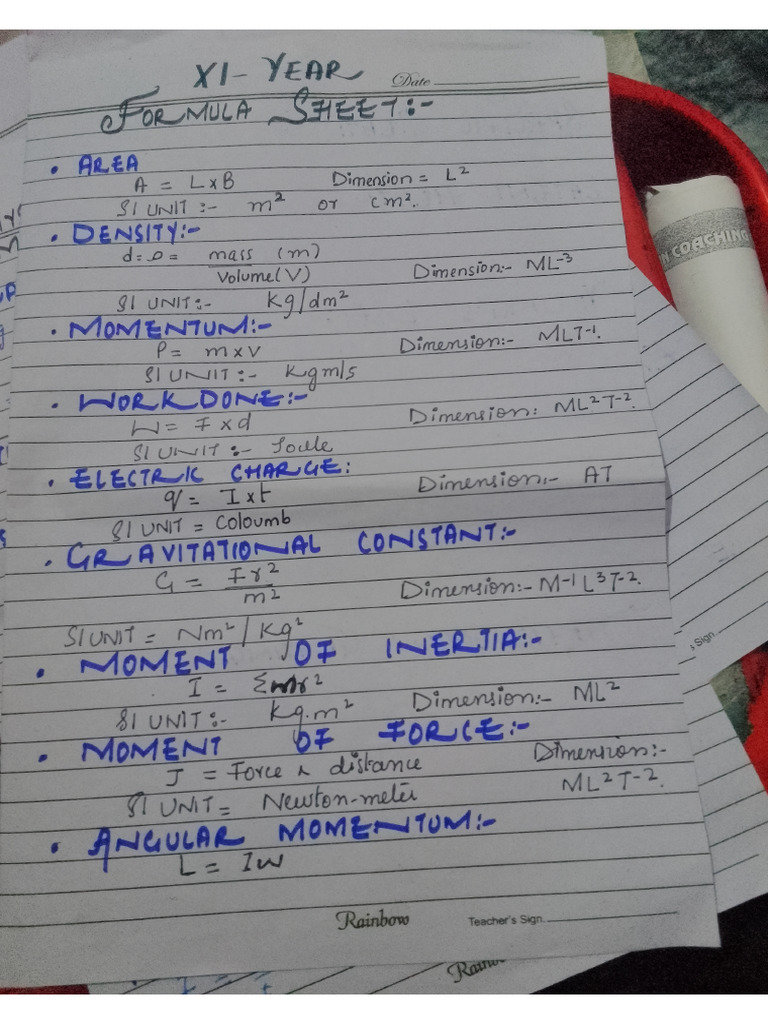 XI - YEAR
Date
FORMULA SHEET:-
• AREA
A = L x B Dimension = L²
SI UNIT :- m² or cm².
• DENSITY:-
d = ρ = mass (m)
Volume (V) Dimension:- ML⁻³
SI UNIT:- Kg/dm²
• MOMENTUM:-
P = m x v Dimension:- MLT⁻¹.
SI UNIT :- Kgm/s
• WORK DONE:-
W = F x d Dimension: ML²T⁻².
SI UNIT:- Joule
• ELECTRIC CHARGE:
q = I x t Dimension:- AT
SI UNIT = Coloumb
• GRAVITATIONAL CONSTANT:-
G = Fr²
m² Dimension:- M⁻¹L³T⁻².
SI UNIT = Nm²/Kg²
• MOMENT OF INERTIA:-
I = Σmr²
SI UNIT:- Kg.m² Dimension:- ML²
• MOMENT OF FORCE:-
J = Force x distance Dimension:-
SI UNIT = Newton-meter ML²T⁻².
• ANGULAR MOMENTUM:-
L = Iω
Rainbow Teacher's Sign.
COACHING
Sign.